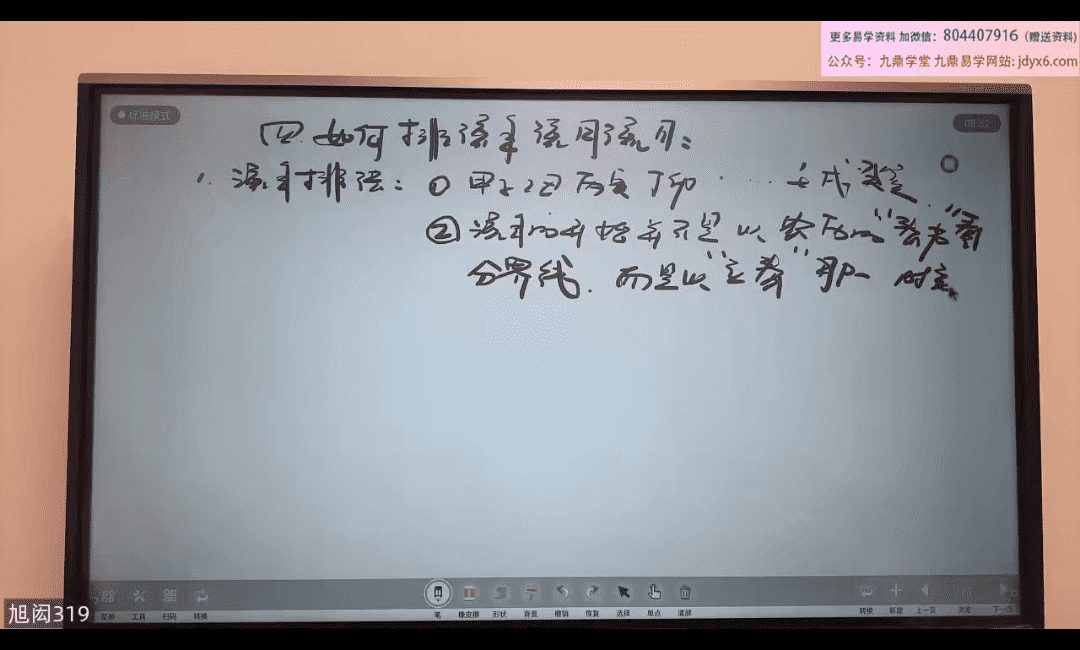 更多易学资料 加微信：804407916（赠送资料）
公众号：九鼎学堂 九鼎易学网站: jdyx6.com
标准模式
08:52
四.如何排流年流月流日：
1. 流年排法：① 甲子 乙丑 丙寅 丁卯 ···· 壬戌 癸亥.
② 流年的开始并不是以农历的“春节”为
分界线. 而是以“立春”那一时辰
菜单 工具 扫码 转换 笔 橡皮擦 形状 背景 撤销 恢复 选择 单点 清屏 转换 新建 上一页 浏览 下一页
旭闳319